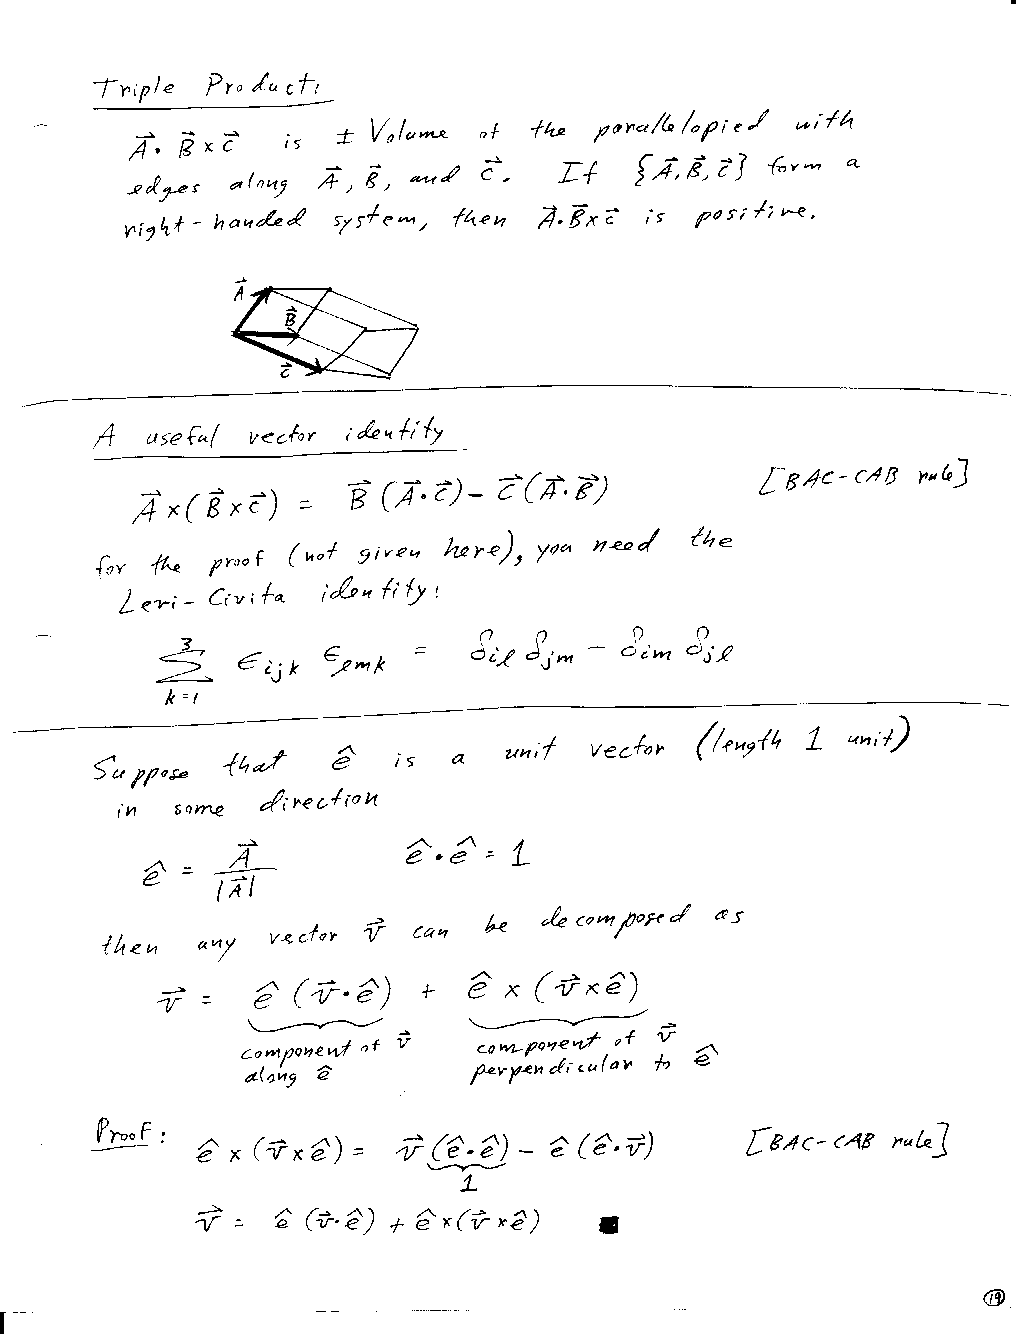 Triple Product:
A⃗ · B⃗ × C⃗ is ± Volume of the parallelopied with
edges along A⃗, B⃗, and C⃗. If {A⃗, B⃗, C⃗} form a
right-handed system, then A⃗·B⃗×C⃗ is positive.
A⃗
B⃗
C⃗
A useful vector identity
A⃗ × (B⃗ × C⃗) = B⃗ (A⃗·C⃗) − C⃗ (A⃗·B⃗) [BAC-CAB rule]
for the proof (not given here), you need the
Levi-Civita identity:
∑_{k=1}^{3} ϵ_{ijk} ϵ_{lmk} = δ_{il} δ_{jm} − δ_{im} δ_{jl}
Suppose that ê is a unit vector (length 1 unit)
in some direction
ê = A⃗ / |A⃗| ê · ê = 1
then any vector v⃗ can be decomposed as
v⃗ = ê (v⃗·ê) + ê × (v⃗ × ê)
component of v⃗ along ê
component of v⃗ perpendicular to ê
Proof: ê × (v⃗ × ê) = v⃗ (ê·ê) − ê (ê·v⃗) [BAC-CAB rule]
1
v⃗ = ê (v⃗·ê) + ê × (v⃗ × ê) ■
19